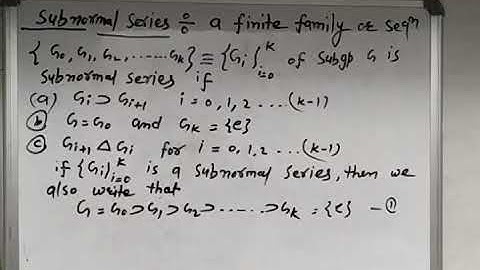 Subnormal Series ÷ a finite family or seqn
{G0, G1, G2, ......Gk} ≡ {Gi}_{i=0}^{k} of Subgp G is
Subnormal Series if
(a) Gi ⊃ Gi+1 i = 0, 1, 2 ...(k-1)
(b) G = G0 and Gk = {e}
(c) Gi+1 Δ Gi for i = 0, 1, 2 ... (k-1)
if {Gi}_{i=0}^{k} is a Subnormal Series, then we
also write that
G = G0 ⊃ G1 ⊃ G2 ⊃ ...... ⊃ Gk = {e} — ①